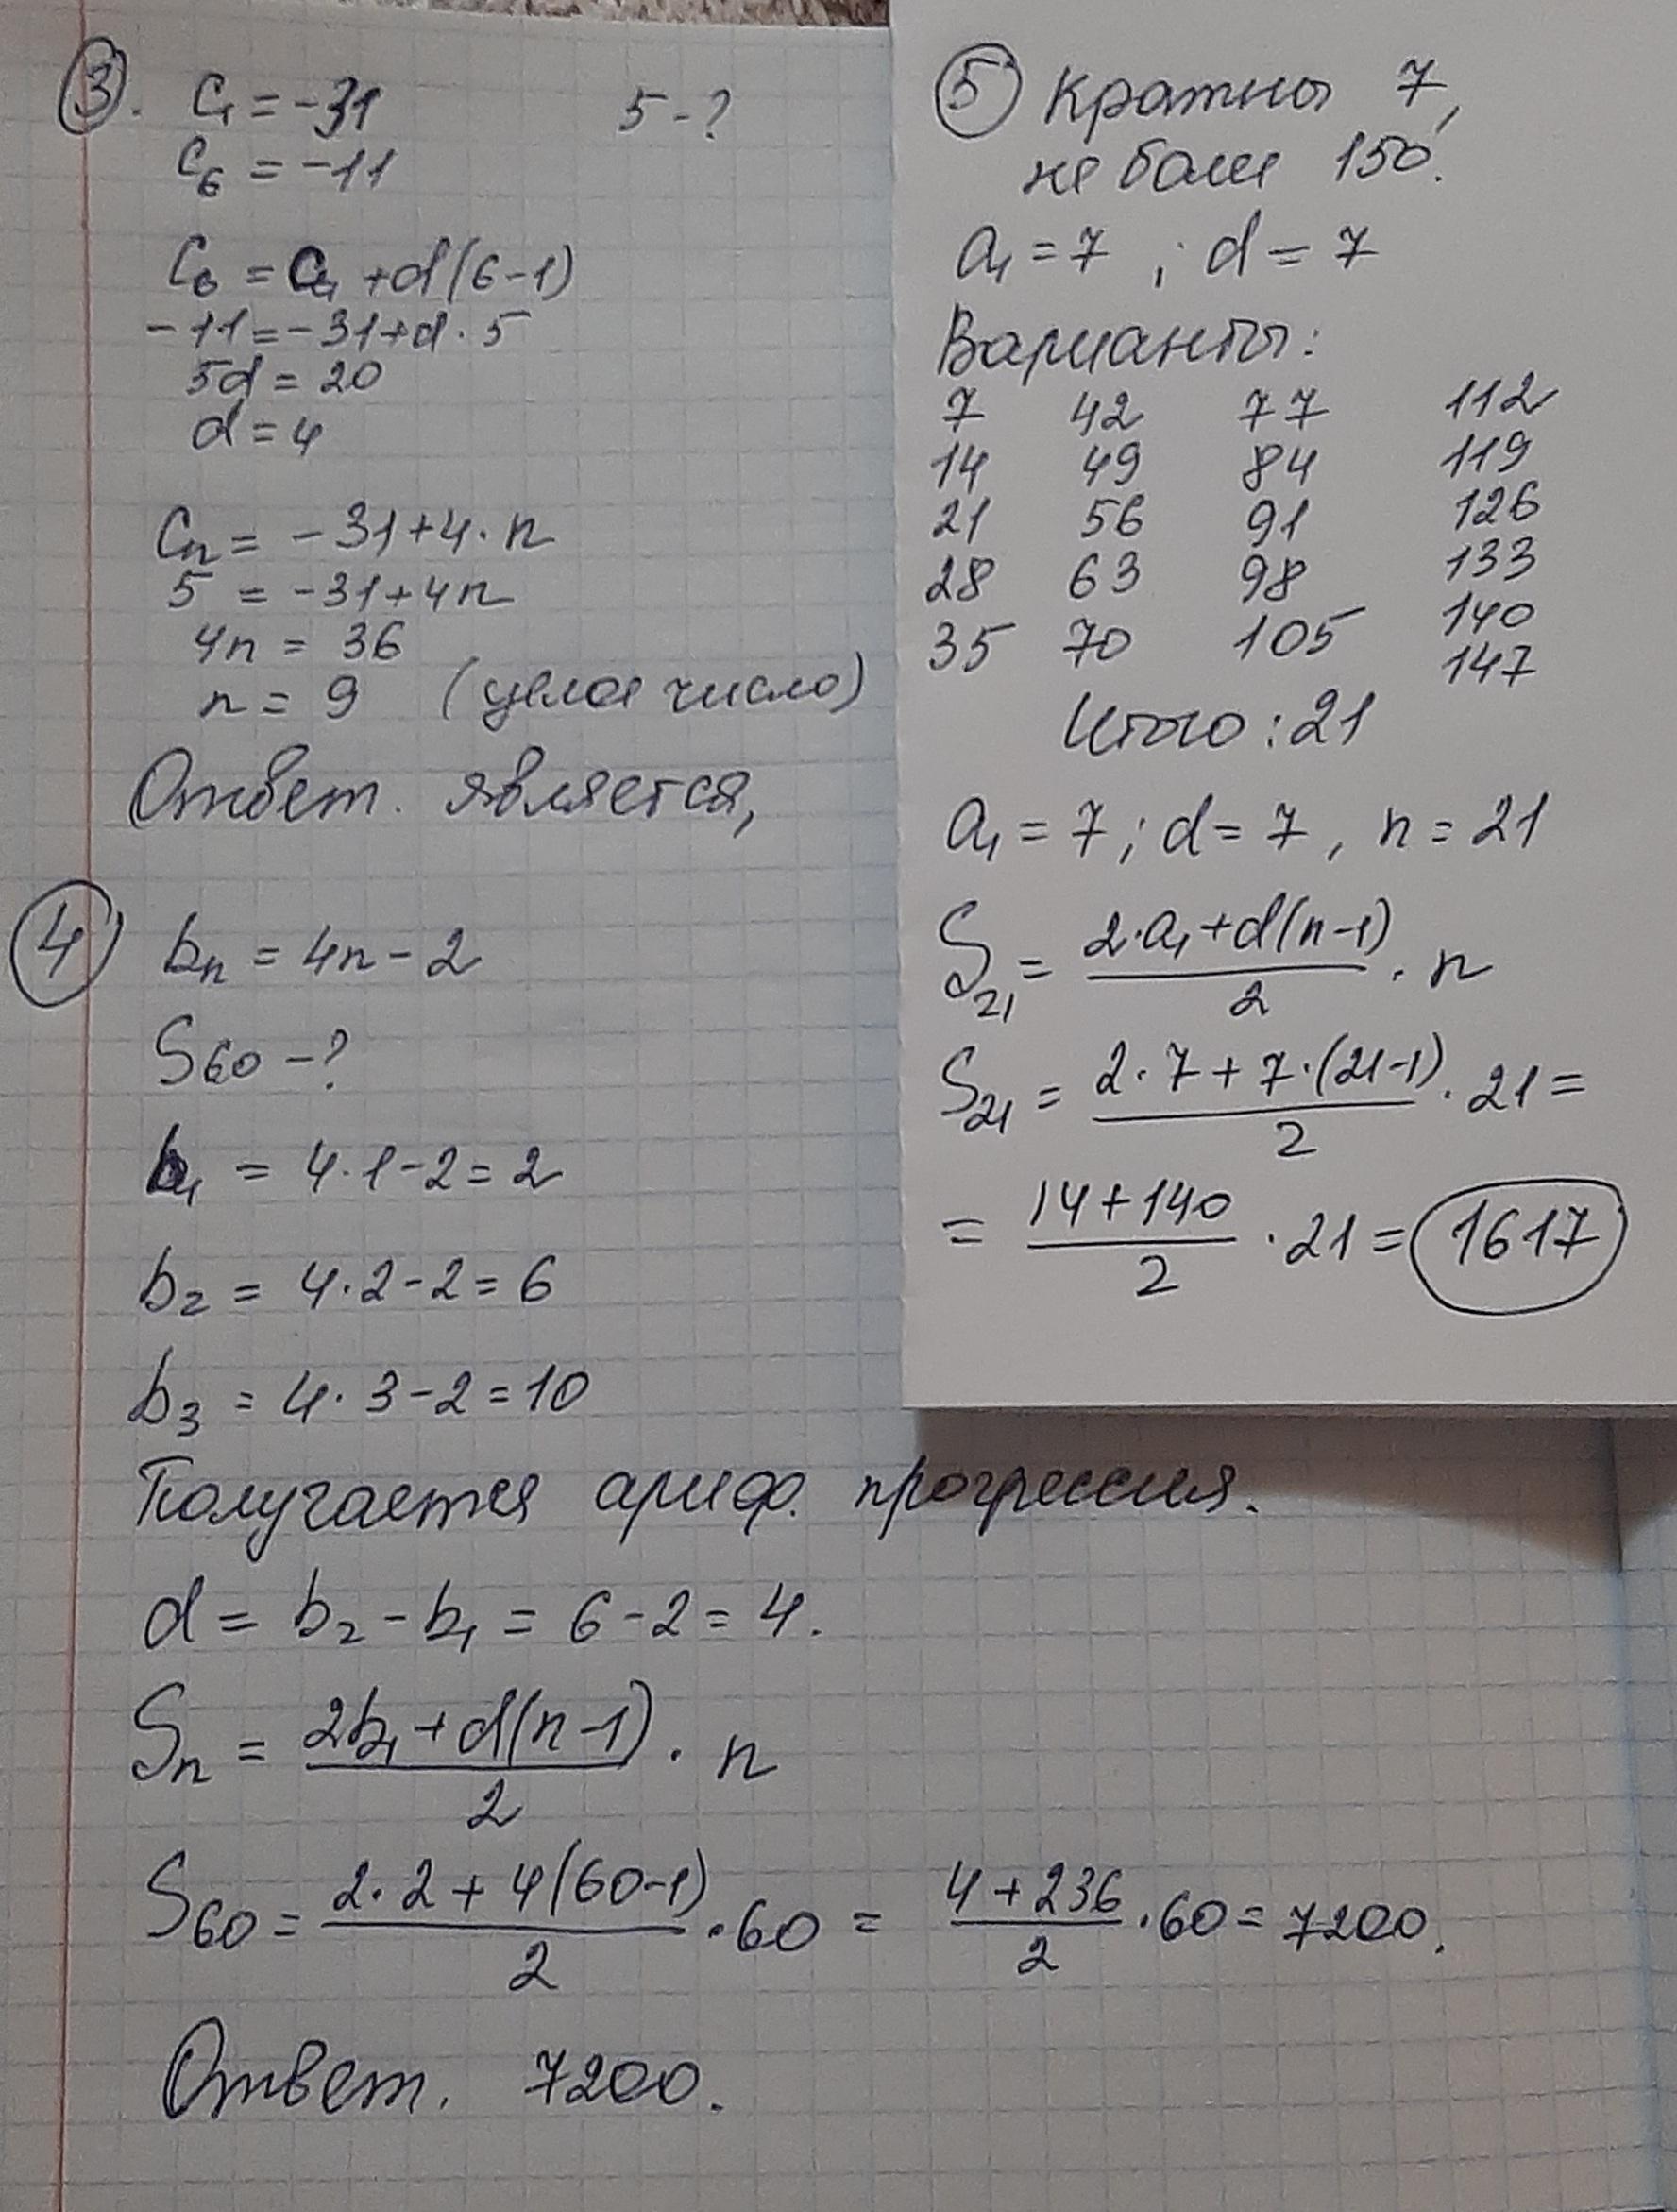 ③. c₁ = -31 5 - ?
c₆ = -11
c₆ = c₁ + d(6-1)
-11 = -31 + d · 5
5d = 20
d = 4
cₙ = -31 + 4 · n
5 = -31 + 4n
4n = 36
n = 9 (целое число)
Ответ. является,
④ bₙ = 4n - 2
S₆₀ - ?
b₁ = 4 · 1 - 2 = 2
b₂ = 4 · 2 - 2 = 6
b₃ = 4 · 3 - 2 = 10
Получается ариф. прогрессия.
d = b₂ - b₁ = 6 - 2 = 4.
Sₙ = (2b₁ + d(n-1))/2 · n
S₆₀ = (2·2 + 4(60-1))/2 · 60 = (4+236)/2 · 60 = 7200.
Ответ. 7200.
⑤ Кратны 7,
не более 150.
a₁ = 7 ; d = 7
Варианты:
7 42 77 112
14 49 84 119
21 56 91 126
28 63 98 133
35 70 105 140
147
Итого : 21
a₁ = 7 ; d = 7 , n = 21
S₂₁ = (2·a₁ + d(n-1))/2 · n
S₂₁ = (2·7 + 7·(21-1))/2 · 21 =
= (14+140)/2 · 21 = 1617